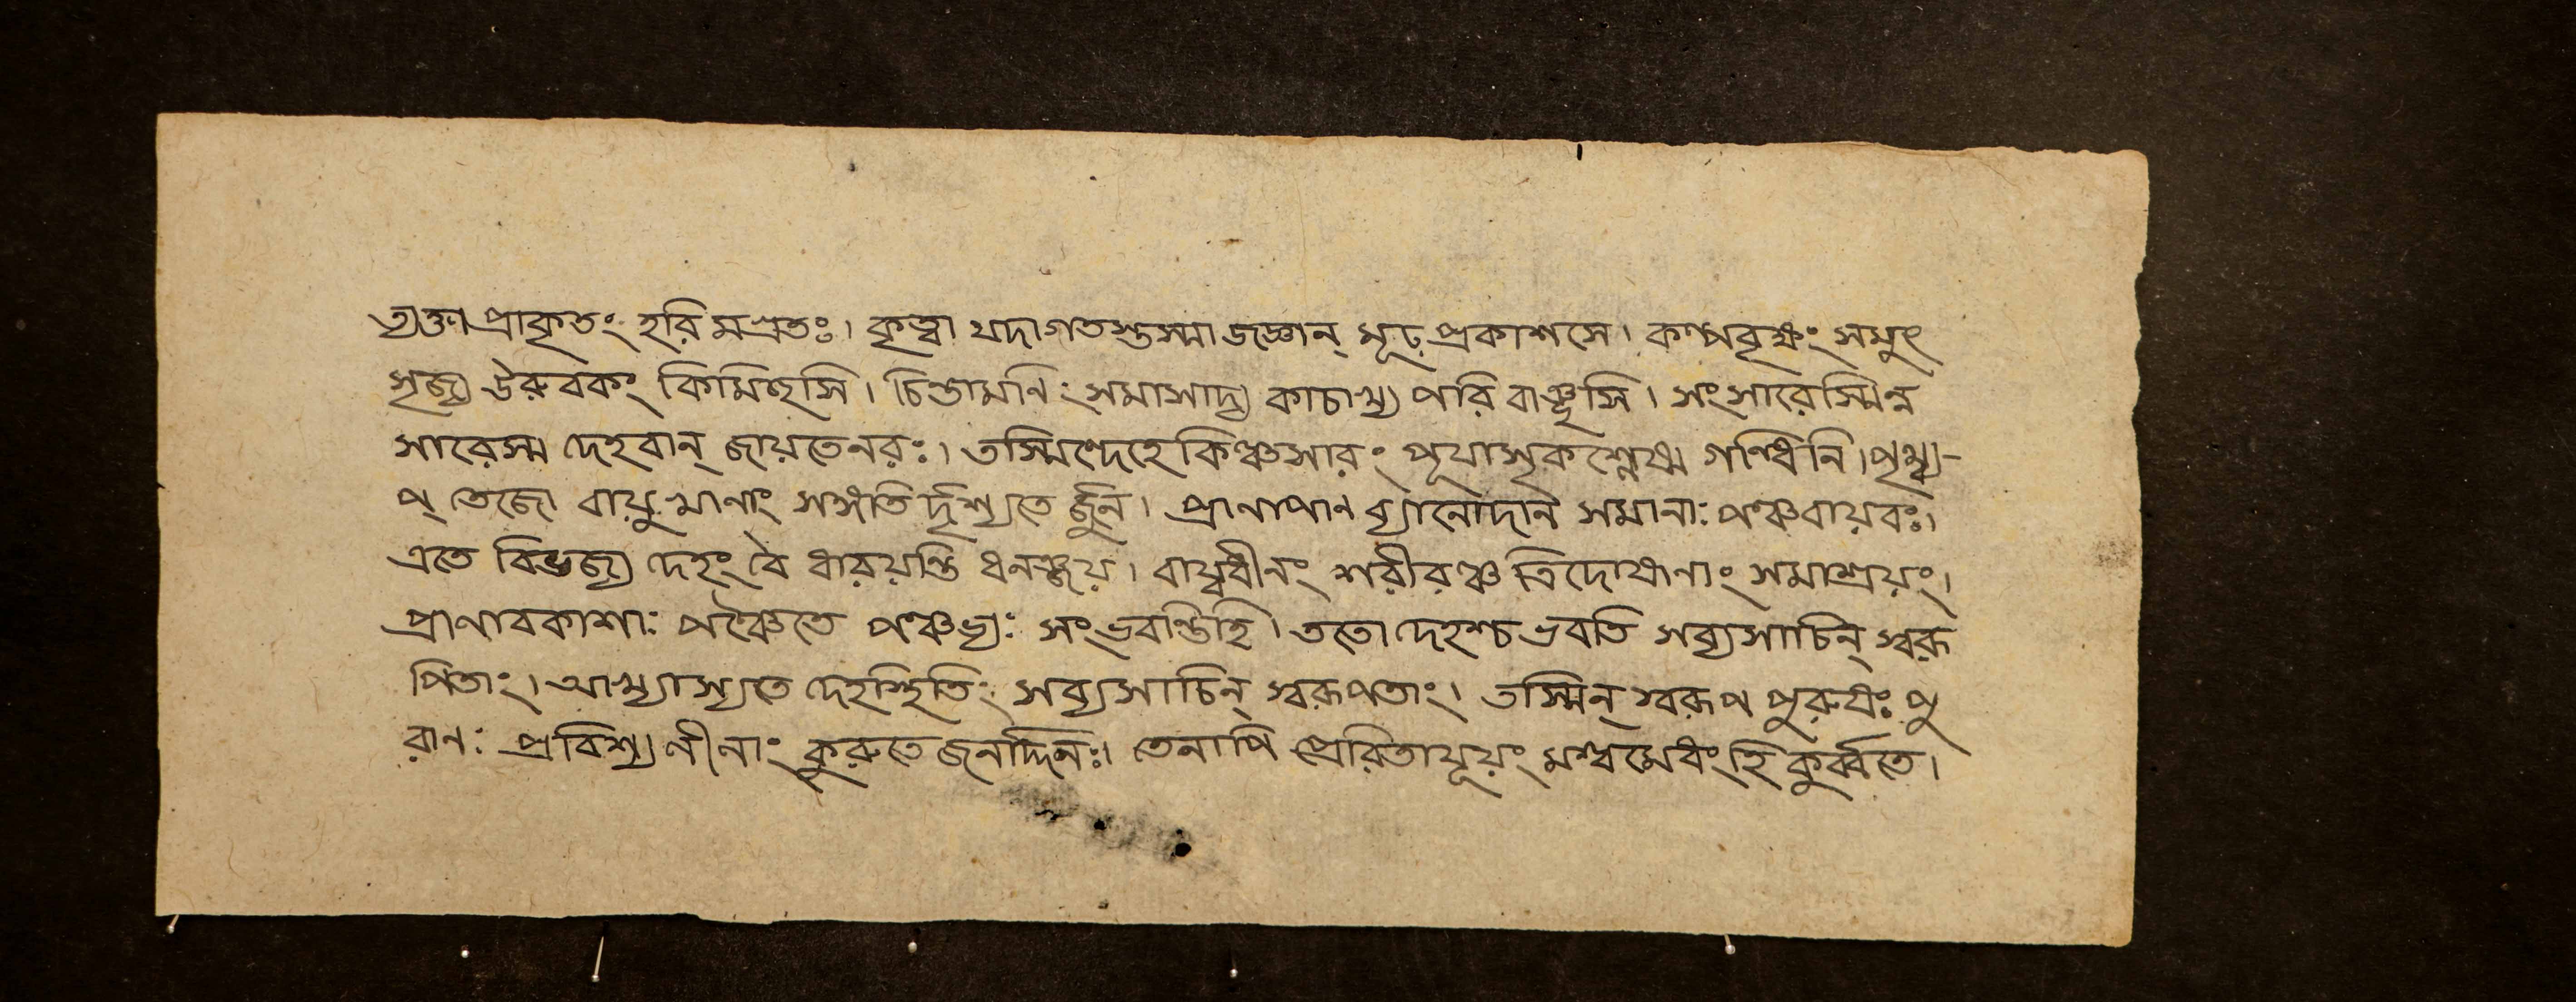 ত্যক্ত্বা প্রাকৃতং হরি মগ্রতঃ। কৃত্বা যদাগতস্তস্মাজ্জ্ঞান্ মূঢ় প্রকাশসে। কল্পবৃক্ষং সমুৎ
সৃজ্য উরুবকং কিমিহসি। চিন্তামনিং সমাসাদ্য কাচাখ্য পরি বাঞ্ছসি। সংসারেস্মিন্ন
সারেস্ম দেহবান্ জায়তেনরঃ। তস্মিন্দেহে কিঞ্চসারং পূযাসৃকশ্লেষ্ম গন্ধিনি। পৃথ্ব্য-
প্ তেজো বায়ু খানাং সঙ্গতি র্দৃশ্যতে র্জ্জুন। প্রাণাপান ব্যানোদান সমানাঃ পঞ্চবায়বঃ।
এতে বিভজ্য দেহং বৈ ধারয়ন্তি ধনঞ্জয়। বায়্বধীনং শরীরঞ্চ ত্রিদোষানাং সমাশ্রয়ং।
প্রাণাবকাশাঃ পঞ্চৈতে পঞ্চভ্যঃ সংভবন্তিহি। ততো দেহশ্চ ভবতি সব্যসাচিন্ স্বরূ
পিতাং। আখ্যাস্যতে দেহস্থিতিং সব্যসাচিন্ স্বরূপতাং। তস্মিন্ স্বরূপ পুরুষঃ পু
রাণঃ প্রবিশ্য লীনাং কুরুতে জনার্দ্দনঃ। তেনাপি প্রেরিতাযূয়ং মশ্বমেধং হি কুর্ব্বতে।